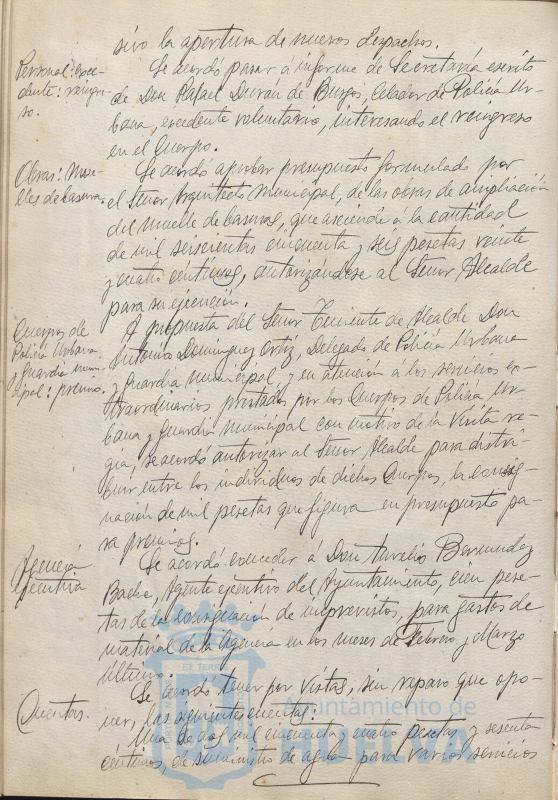 sivo la apertura de nuevos despachos.
Personal: exce-
dente: reingre-
so.
Se acordó pasar á informe de Secretaría escrito
de Don Rafael Durán de Burgos, Celador de Policía Ur-
bana, excedente voluntario, interesando el reingreso
en el Cuerpo.
Obras: Mue-
lles de basuras.
Se acordó aprobar presupuesto formulado por
el Señor Arquitecto municipal, de las obras de ampliación
del muelle de basuras, que asciende á la cantidad
de mil seiscientas cincuenta y seis pesetas veinte
y cuatro céntimos, autorizándose al Señor Alcalde
para su ejecución.
Cuerpos de
Policía Urbana
y guardia muni-
cipal: premio.
A propuesta del Señor Teniente de Alcalde Don
Antonio Dominguez Ortiz, Delegado de Policía Urbana
y Guardia municipal, y en atención a los servicios ex-
traordinarios prestados por los Cuerpos de Policía Ur-
bana y Guardia municipal con motivo de la visita re-
gia, se acordó autorizar al Señor Alcalde para distri-
buir entre los individuos de dichos Cuerpos, la consig-
nación de mil pesetas que figura en presupuesto pa-
ra premios.
Agencia
ejecutiva
Se acordó conceder á Don Aurelio Bermudez
Agente ejecutivo del Ayuntamiento, cien pese-
tas de la consignación de imprevistos, para gastos de
material de la Agencia en los meses de Febrero y Marzo
último.
Cuentas.
Se acordó tener por vistas, sin reparo que opo-
ner, las siguientes cuentas:
Una de mil cincuenta y cuatro pesetas y sesenta
céntimos, de suministro de agua para varios servicios
Ayuntamiento de
HUELVA